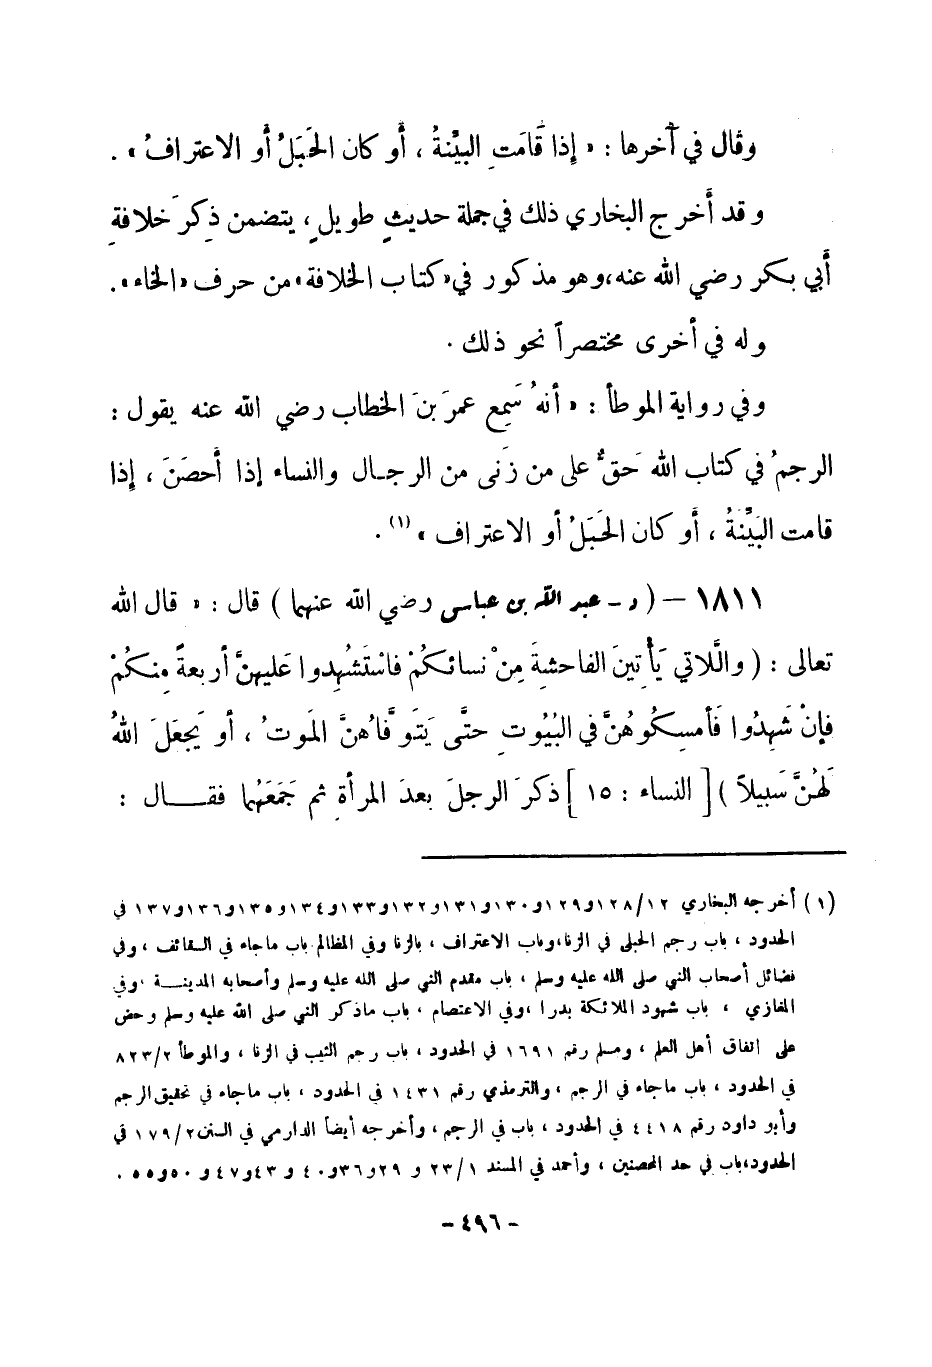 وقال في آخرها : « إذا قَامَتِ البيِّنةُ ، أو كان الحَبَلُ أو الاعترافُ » .
وقد أخرج البخاري ذلك في جملة حديثٍ طويلٍ ، يتضمن ذِكرَ خلافةِ
أبي بكر رضي الله عنه،وهو مذكور في «كتاب الخلافة» من حرف «الخاء» .
وله في أخرى مختصراً نحو ذلك .
وفي رواية الموطأ : « أنهُ سَمِع عمرَ بنَ الخطاب رضي الله عنه يقول :
الرجمُ في كتاب الله حَقٌّ على من زَنى من الرجال والنساء إذا أحصَنَ ، إذا
قامت البَيِّنَةُ ، أو كان الحَبَلُ أو الاعتراف » (١) .
١٨١١ – ( د - عبد الله بن عباس رضي الله عنهما ) قال : « قال الله
تعالى : ( واللَّاتي يَأْتِينَ الفاحشةَ مِنْ نسائكُمْ فاسْتَشهِدوا عَليهنَّ أربعةً مِنكُمْ
فإنْ شَهِدُوا فَأمسِكُوهُنَّ في البُيُوتِ حتَّى يَتَوفَّاهُنَّ المَوتُ ، أو يَجعَلَ اللهُ
لَهُنَّ سَبيلاً ) [ النساء : ١٥ ] ذكرَ الرجلَ بعدَ المرأةِ ثم جَمَعَهُما فقال :
(١) أخرجه البخاري ١٢/١٢٨و١٢٩و١٣٠و١٣١و١٣٢و١٣٣و١٣٤و١٣٥و١٣٦و١٣٧ في
الحدود ، باب رجم الحبلى في الزنا،وباب الاعتراف ، بالزنا وفي المظالم باب ماجاء في السقائف ، وفي
فضائل أصحاب النبي صلى الله عليه وسلم ، باب مقدم النبي صلى الله عليه وسلم وأصحابه المدينة ،وفي
المغازي ، باب شهود الملائكة بدرا ،وفي الاعتصام ، باب ماذكر النبي صلى الله عليه وسلم وحض
على اتفاق أهل العلم ، ومسلم رقم ١٦٩١ في الحدود ، باب رجم الثيب في الزنا ، والموطأ ٨٢٣/٢
في الحدود ، باب ماجاء في الرجم ، والترمذي رقم ١٤٣١ في الحدود ، باب ماجاء في تحقيق الرجم
وأبو داود رقم ٤٤١٨ في الحدود ، باب في الرجم ، وأخرجه أيضاً الدارمي في السنن ١٧٩/٢ في
الحدود،باب في حد المحصنين ، وأحمد في المسند ٢٣/١ و ٢٩و٣٦و٤٠ و ٤٣و٤٧ و ٥٠و٥٥ .
- ٤٩٦ -